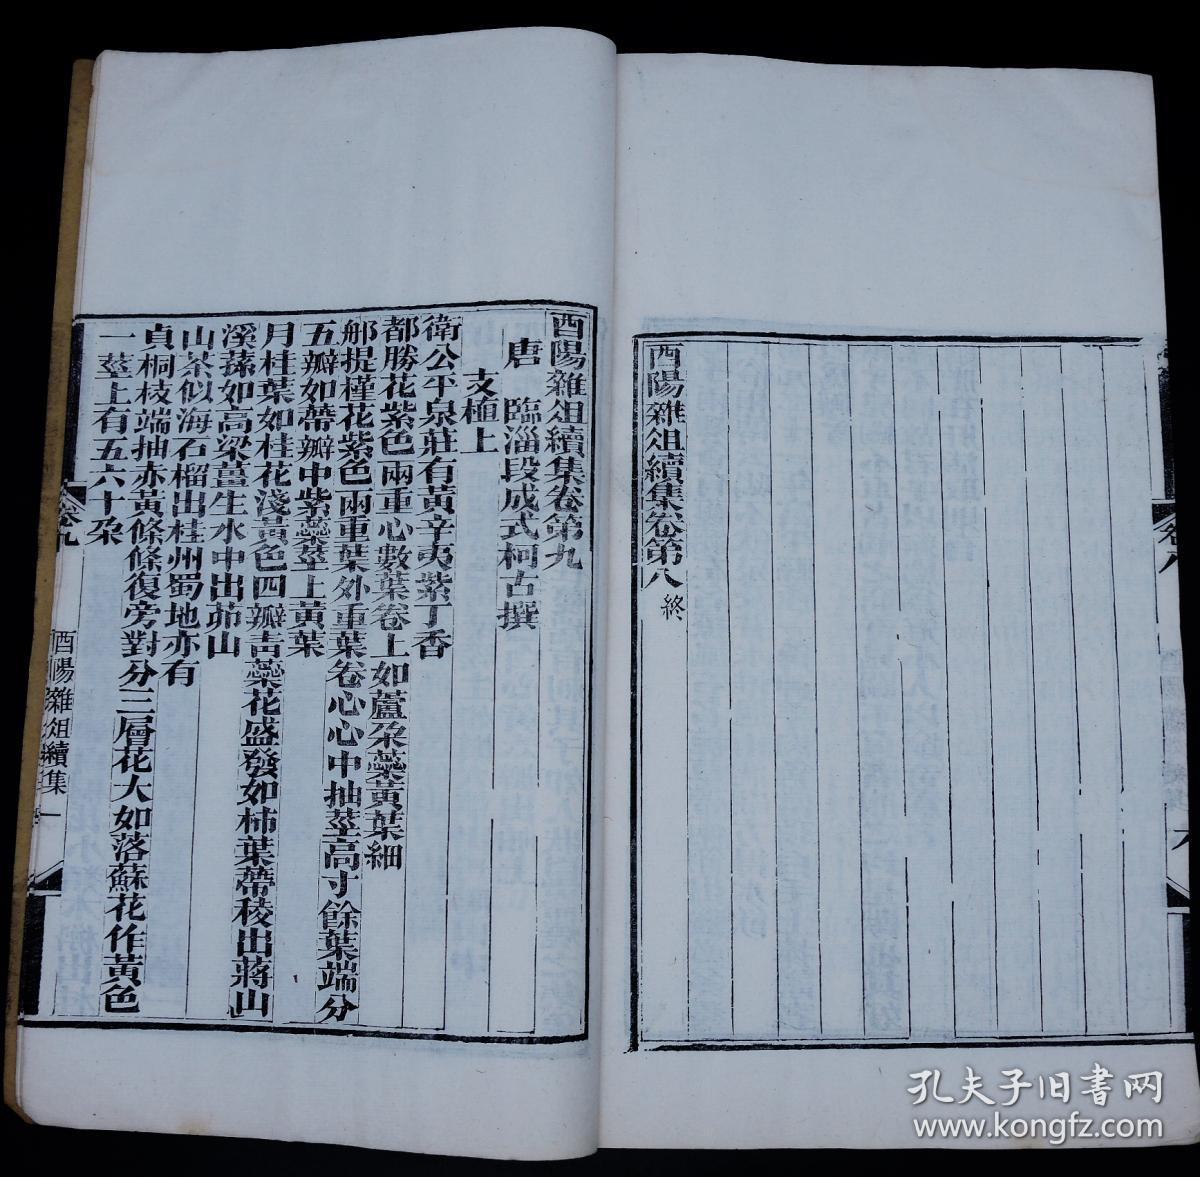 酉陽雜俎續集卷第八 終
酉陽雜俎續集卷第九
唐 臨淄段成式柯古撰
支植上
衛公平泉莊有黃辛夷紫丁香
都勝花紫色兩重心數葉卷上如蘆朶蘂黃葉細
那提槿花紫色兩重葉外重葉卷心心中抽莖高寸餘葉端分
五瓣如蔕瓣中紫蘂莖上黃葉
月桂葉如桂花淺黃色四瓣靑蘂花盛發如柿葉蔕稜出蔣山
溪蓀如高梁薑生水中出茆山
山茶似海石榴出桂州蜀地亦有
貞桐枝端抽赤黃條條復旁對分三層花大如落蘇花作黃色
一莖上有五六十朶
卷九
酉陽雜俎續集
一
卷八
孔夫子旧书网
www.kongfz.com